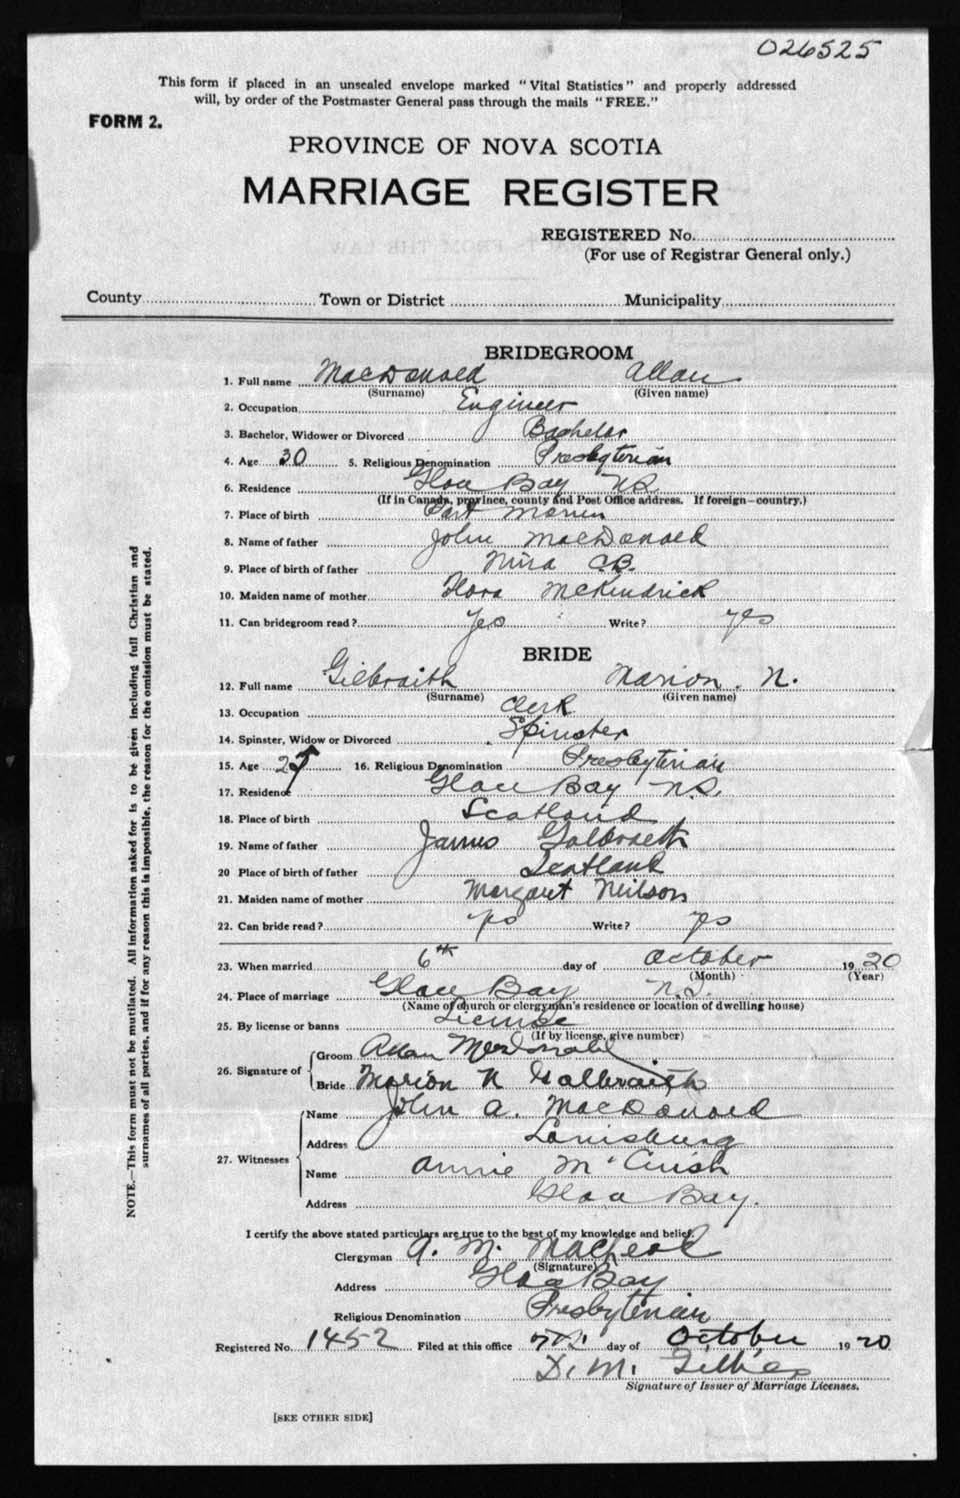 026525
This form if placed in an unsealed envelope marked "Vital Statistics" and properly addressed
will, by order of the Postmaster General pass through the mails "FREE."
FORM 2.
PROVINCE OF NOVA SCOTIA
MARRIAGE REGISTER
REGISTERED No.
(For use of Registrar General only.)
County Town or District Municipality
BRIDEGROOM
1. Full name MacDonald Allan
(Surname) (Given name)
2. Occupation Engineer
3. Bachelor, Widower or Divorced Bachelor
4. Age 30 5. Religious Denomination Presbyterian
6. Residence Glace Bay N.S.
(If in Canada, province, county and Post Office address. If foreign—country.)
7. Place of birth Port Morien
8. Name of father John MacDonald
9. Place of birth of father Mira C.B.
10. Maiden name of mother Flora McKendrick
11. Can bridegroom read? Yes Write? yes
BRIDE
12. Full name Gilbraith Marion. N.
(Surname) (Given name)
13. Occupation Clerk
14. Spinster, Widow or Divorced Spinster
15. Age 25 16. Religious Denomination Presbyterian
17. Residence Glace Bay N.S.
18. Place of birth Scotland
19. Name of father James Galbraith
20 Place of birth of father Scotland
21. Maiden name of mother Margaret Neilson
22. Can bride read? yes Write? yes
23. When married 6th day of October 1920
(Month) (Year)
24. Place of marriage Glace Bay N.S.
(Name of church or clergyman's residence or location of dwelling house)
25. By license or banns License
(If by license, give number)
26. Signature of Groom Allan McDonald
Bride Marion N Galbraith
27. Witnesses Name John A. MacDonald
Address Louisburg
Name Annie M'Cuish
Address Glace Bay.
I certify the above stated particulars are true to the best of my knowledge and belief.
Clergyman A. M. MacLeod
(Signature)
Address Glace Bay
Religious Denomination Presbyterian
Registered No. 1452 Filed at this office day of October 1920
D. M. Gillies
Signature of Issuer of Marriage Licenses.
[SEE OTHER SIDE]
NOTE.—This form must not be mutilated. All information asked for is to be given including full Christian and
surnames of all parties, and if for any reason this is impossible, the reason for the omission must be stated.